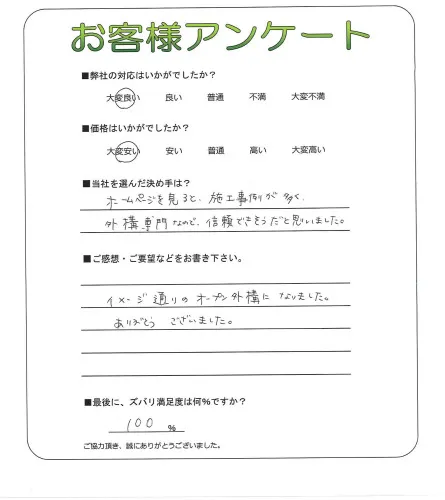 お客様アンケート
■弊社の対応はいかがでしたか？
大変良い 良い 普通 不満 大変不満
■価格はいかがでしたか？
大変安い 安い 普通 高い 大変高い
■当社を選んだ決め手は？
ホームページを見ると、施工事例が多く、
外構専門なので、信頼できそうだと思いました。
■ご感想・ご要望などをお書き下さい。
イメージ通りのオープン外構になりました。
ありがとう ございました。
■最後に、ズバリ満足度は何%ですか？
100 %
ご協力頂き、誠にありがとうございました。